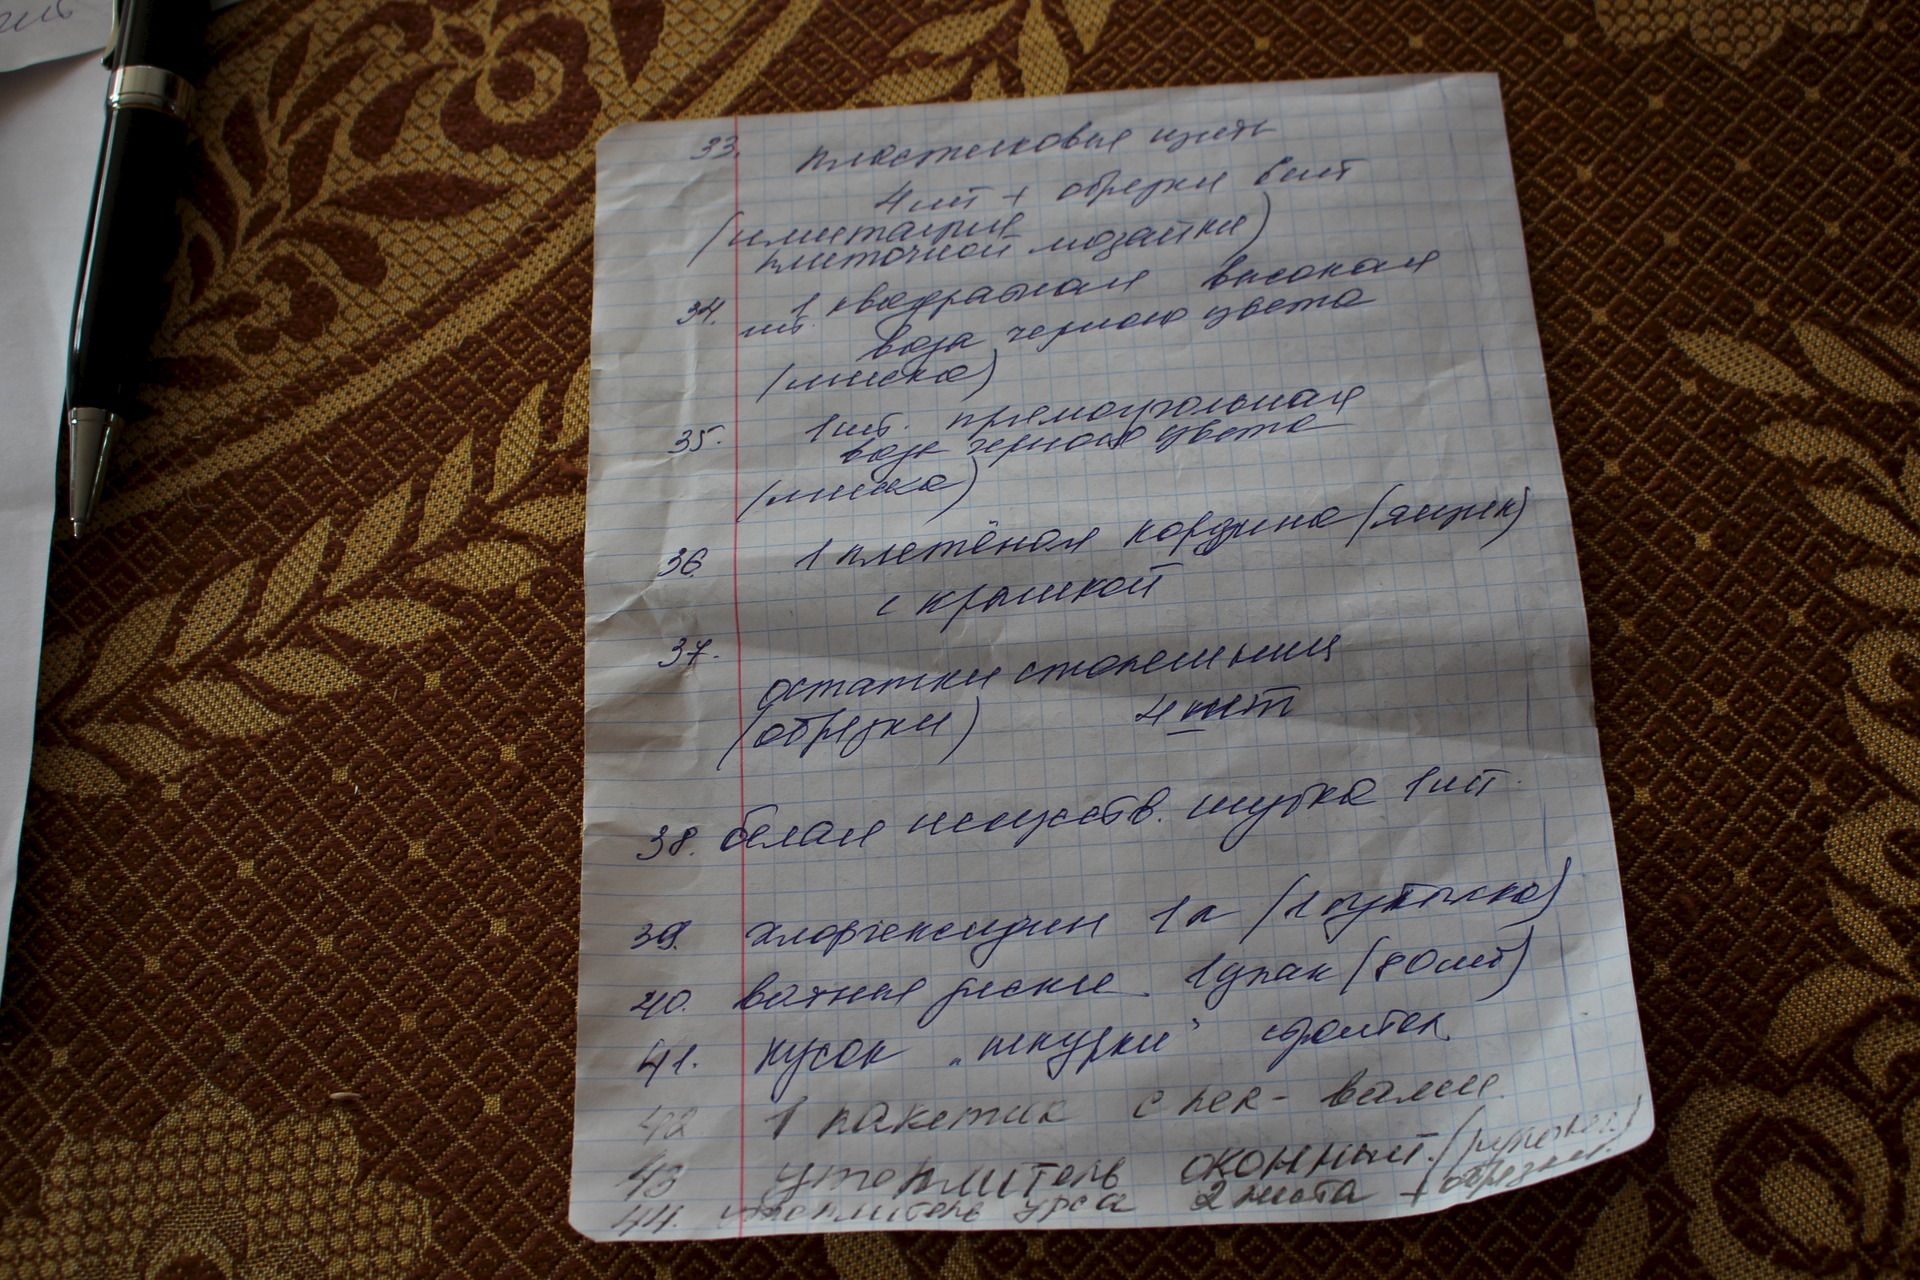 33. пластиковые щиты
4 шт + обрезки 6 шт
(имитация
плиточной мозайки)
34. 1 квадратная высокая
шт. ваза черного цвета
(миска)
35. 1 шт. прямоугольная
ваза черного цвета
(миска)
36. 1 плетёная корзина (ящик)
с крышкой
37.
остатки столешниц
(обрезки) 4 шт
38. белая искуств. шубка 1 шт.
39. хлоргексидин 1 л (1 бутылка)
40. ватные диски. 1 упак (80 шт)
41. кусок „шкурки"
42 1 пакетик с
43 утеплитель оконный.
44. утеплитель урса 2 листа + обрезки.